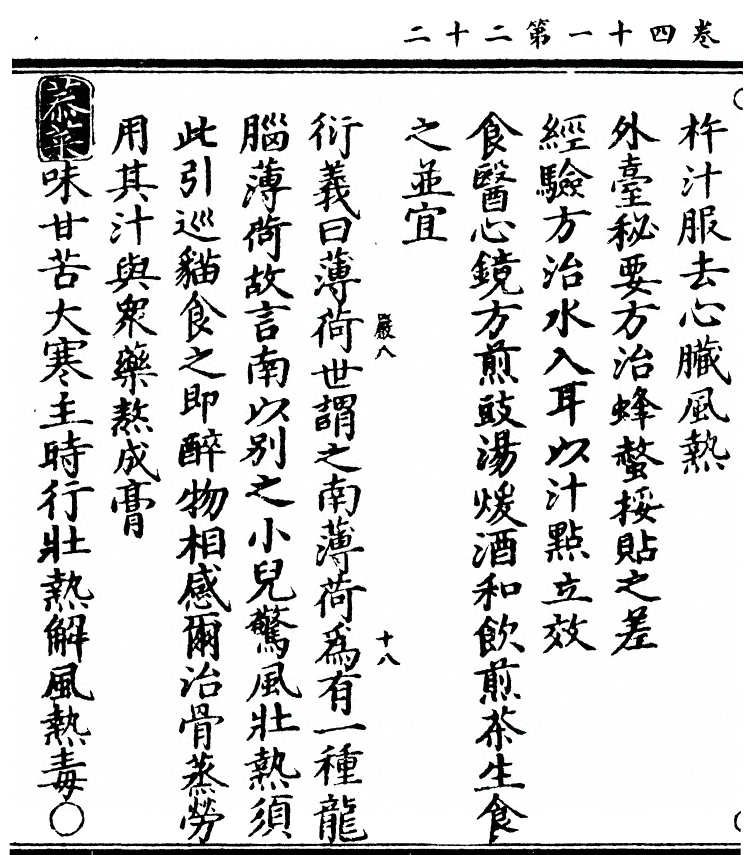 卷四十一第二十二
杵汁服去心臟風熱
外臺秘要方治蜂螫挼貼之差
經驗方治水入耳以汁點立效
食醫心鏡方煎豉湯煖酒和飲煎茶生食
之並宜
嚴八 十八
衍義曰薄荷世謂之南薄荷爲有一種龍
腦薄荷故言南以別之小兒驚風壯熱須
此引巡貓食之即醉物相感爾治骨蒸勞
用其汁與衆藥熬成膏
菾菜味甘苦大寒主時行壯熱解風熱毒〇